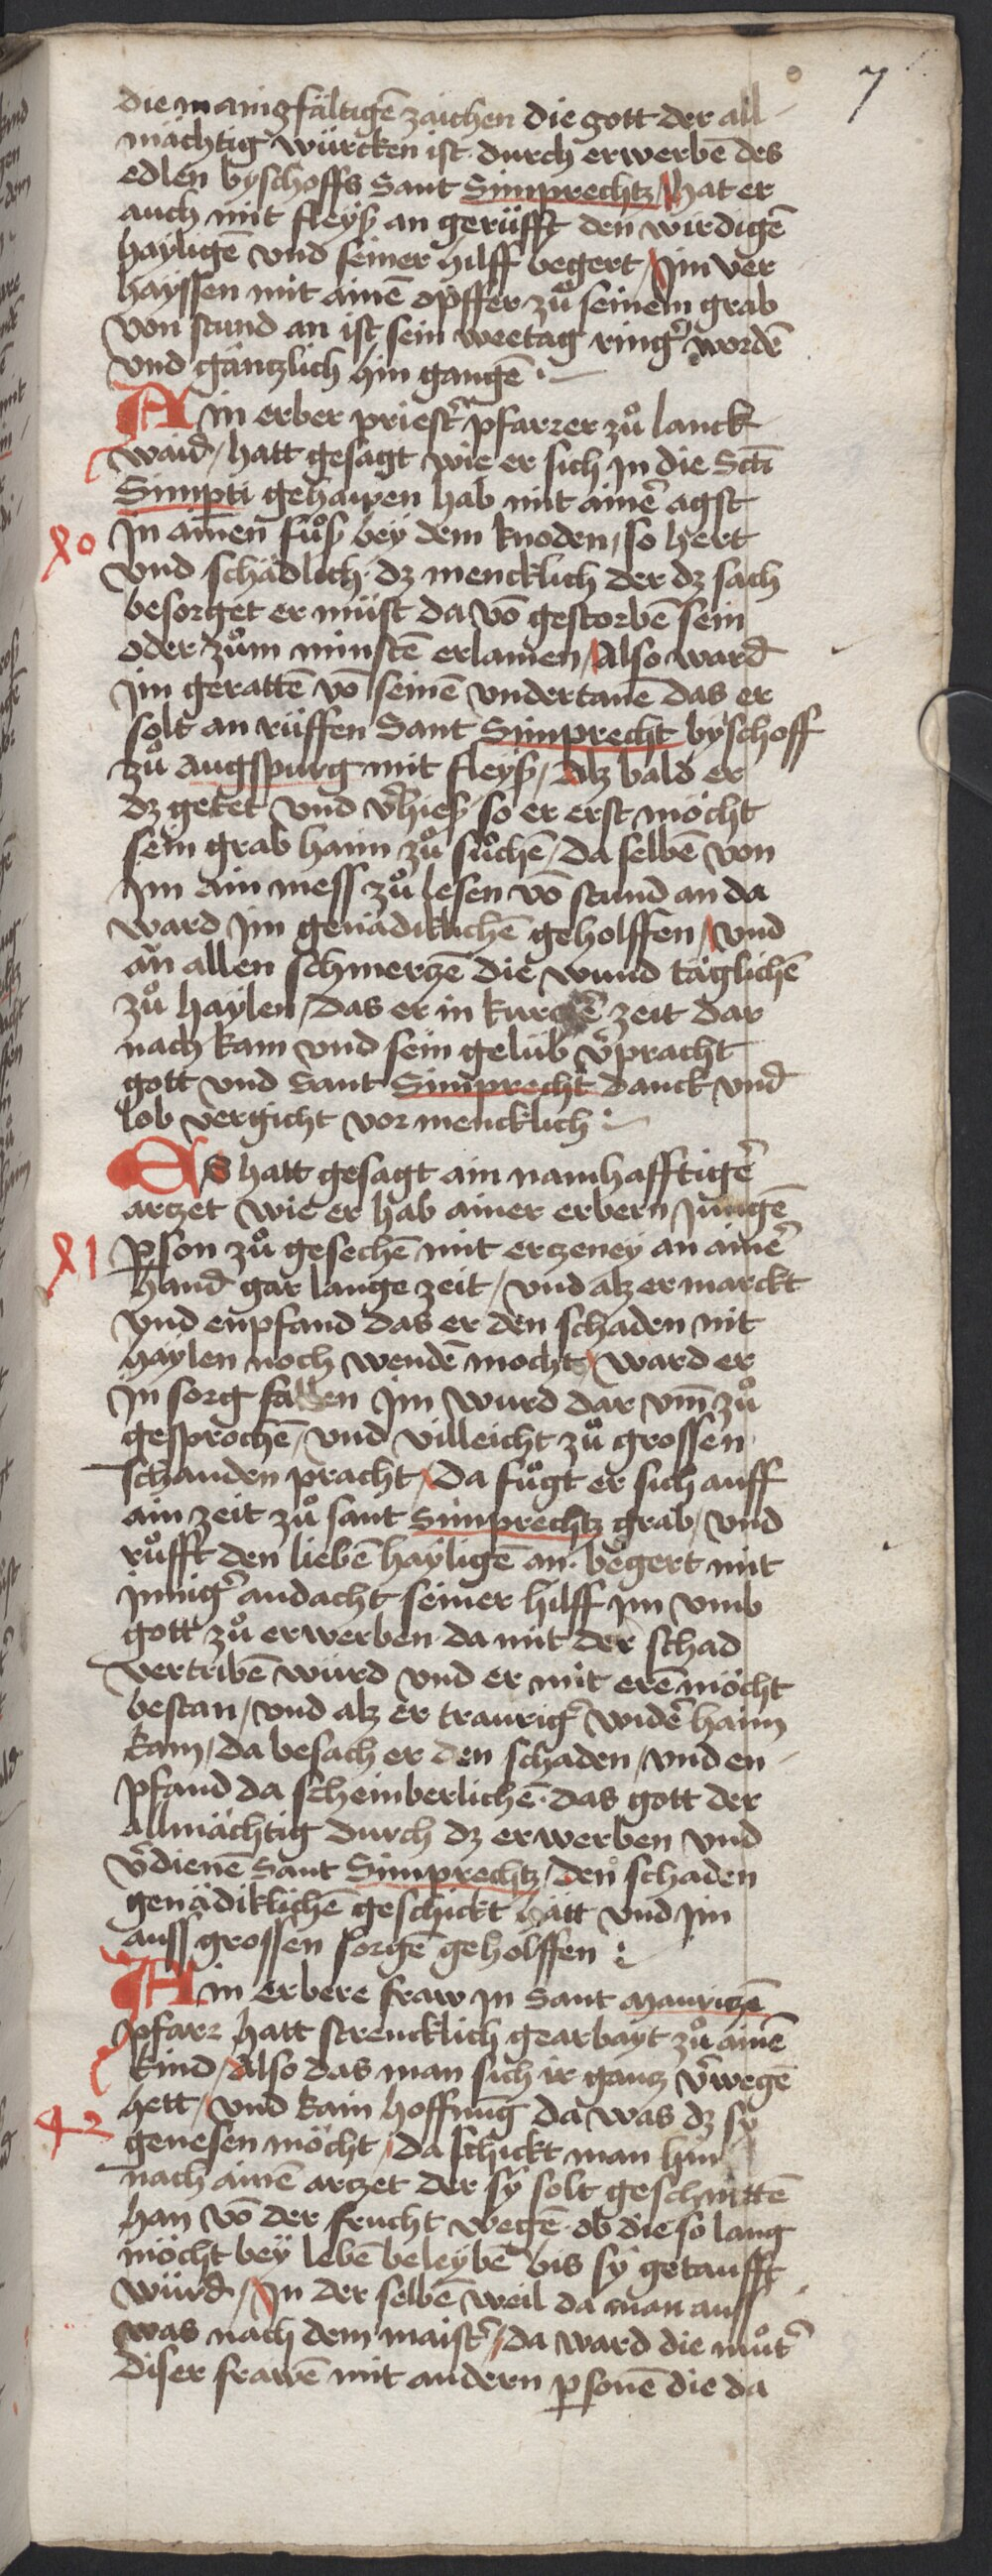 7
die manigfältigē zaichen die gott der all
mächtig würcken ist durch erwerbē des
edlen byschoffs Sant Simprechtz / hat er
auch mit fleyß an gerüfft den wirdigē
hayligē vnd seiner hilff begert / Jm ver
hayssen mit ainē opffer zů seinem grab
von stund an ist sein weetag ringer wordē
vnd gäntzlich hin gangē
Ain erber priester pfarrer zů lanck
waid / hatt gesagt wie er sich jn die Scti
Simpti gehawen hab mit ainer agst
40
Jn ainen fůß bey dem knoden / so hert
vnd schädlich dz mencklich der dz sach
besorget er müst da vō gestorbē sein
oder zům minstē erlamen / Also ward
jm geratten vō seinē vndertanē das er
solt an rüffen Sant Simprecht byschoff
zů augspurg mit fleyß / Alz bald er
dz getet vnd v̄hieß so er erst möcht
sein grab haim zů sůchē / da selbē von
jm ain mess zů lesen vō stund an da
ward Jm genädiklichē geholffen / vnd
an allen schmertzē die wund täglichē
zů haylen / das er in kurtzē zeit dar
nach kam vnd sein gelüb v̄pracht
gott vnd Sant Simprecht danck vnd
lob vergicht vor mencklich
Es hatt gesagt ain namhafftiger
artzet wie er hab ainer erbern jungē
41
p̱son zů gesechē mit ertzeney an ainer
hand gar lange zeit / vnd alz er marckt
vnd enpfand das er den schaden nit
haylen noch wendē mocht / ward er
Jn sorg fallen jm wurd dar vm̄ zů
gesprochē / vnd villeicht zů grossen
schanden pracht / da fůgt er sich auff
ain zeit zů sant Simprechtz grab / vnd
růfft den liebē hayligē an begert mit
jnniger andacht seiner hilff jm vmb
gott zů erwerben da mit der schad
vertribē würd vnd er mit erē möcht
bestan / vnd alz er trauriger wider haim
kam / da besach er den schaden / vnd en
pfand da scheinberlichē das gott der
allmächtig durch dz erwerben vnd
v̄dienē Sant Simprechtz / den schaden
genädiklichē geschickt hätt vnd jm
auss grossen sorgē geholffen
Ain erbere fraw jn Sant Mauritzē
pfarr hatt strencklich gearbayt zů ainē
kind / Also das man sich ir gantz v̄wegē
42
hett / vnd kain hoffnung da was dz sy
genesen möcht / da schickt man hin
nach ainē artzet der sy solt geschnittē
han vō der frucht wegē ob die so lang
möcht bey lebē beleybē bis sy getaufft
würd / Jn der selbē weil da man auss
was nach dem maister / da ward die můter
diser frawē mit andern p̱sonē die da